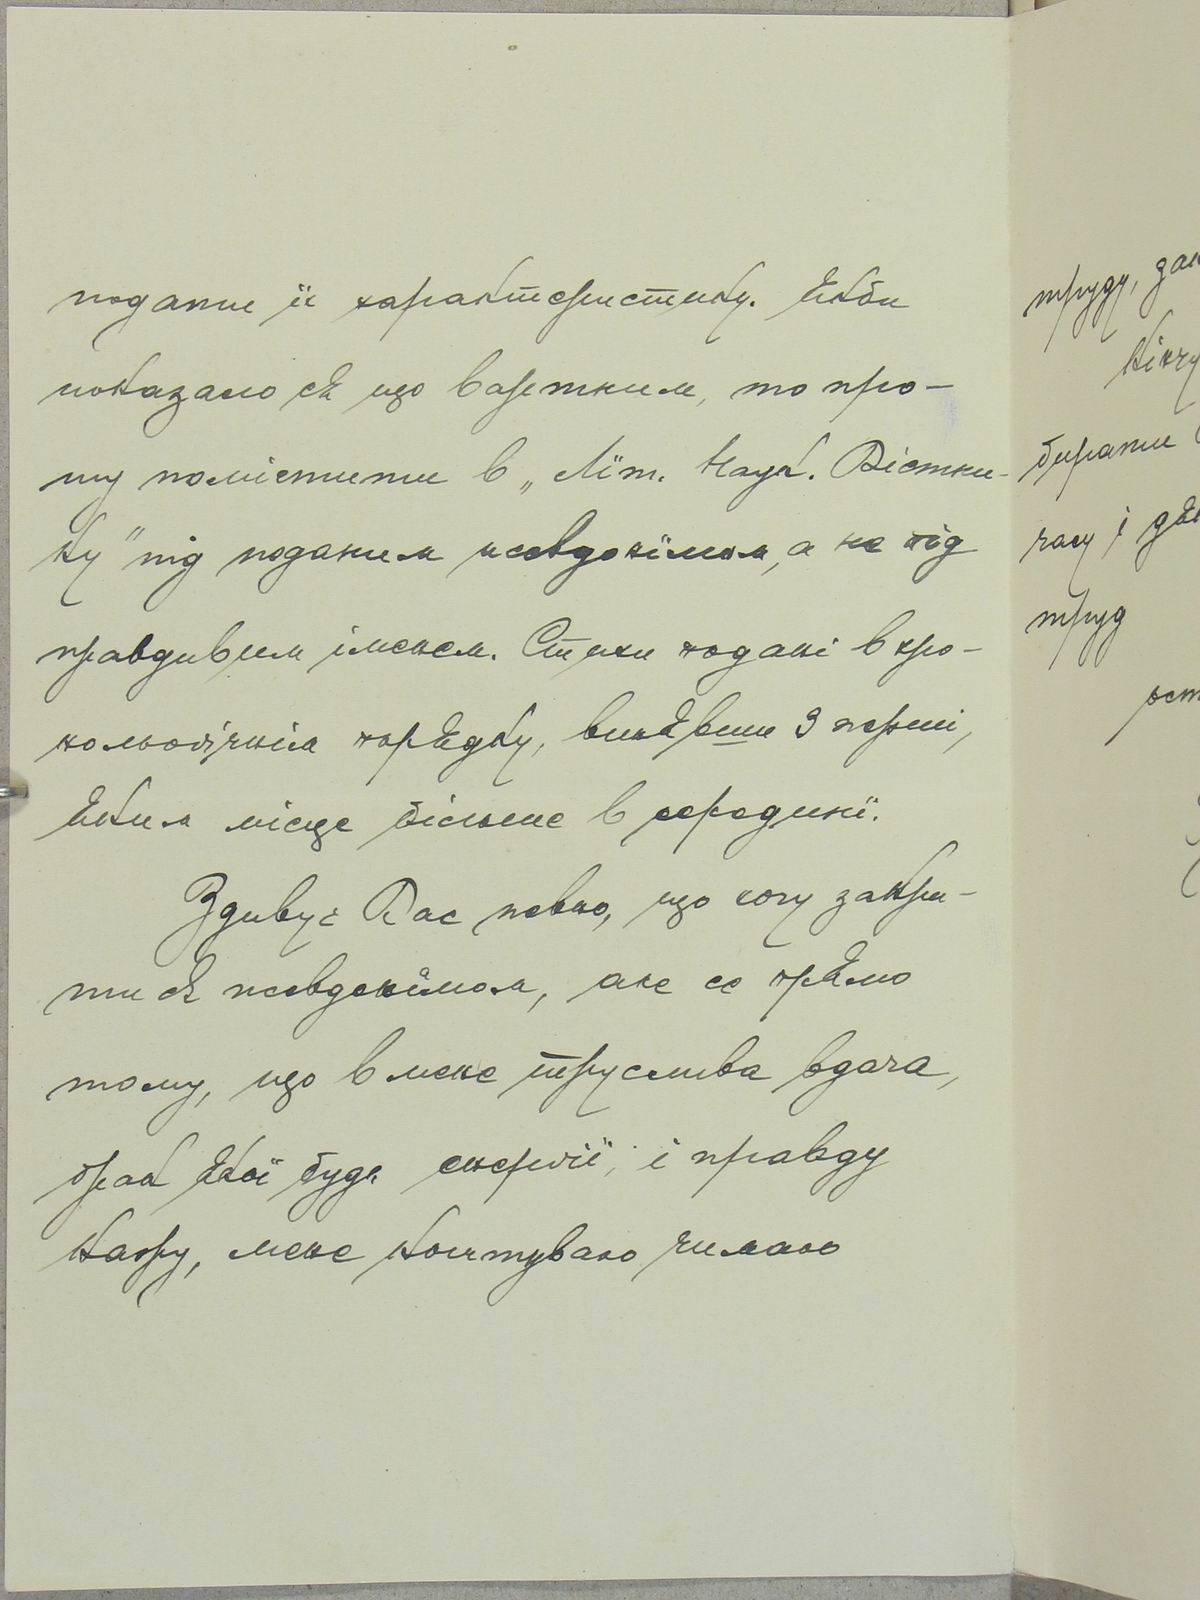 подати її характеристику. Якби
показало ся що вартним, то про-
шу помістити в „Літ. Наук. Вістни-
ку" під поданим псевдонїмом, а не під
правдивим іменем. Стихи подані в хро-
нольоґічнім порядку, виняввши 3 перші,
яким місце більше в серединї.
Здивує Вас певно, що хочу закри-
ти ся псевдонїмом, але се прямо
тому, що в мене труслива вдача,
брак якої будь енерґії, і правду
кажу, мене коштувало чимало
труду,
бирати
часу і
труд